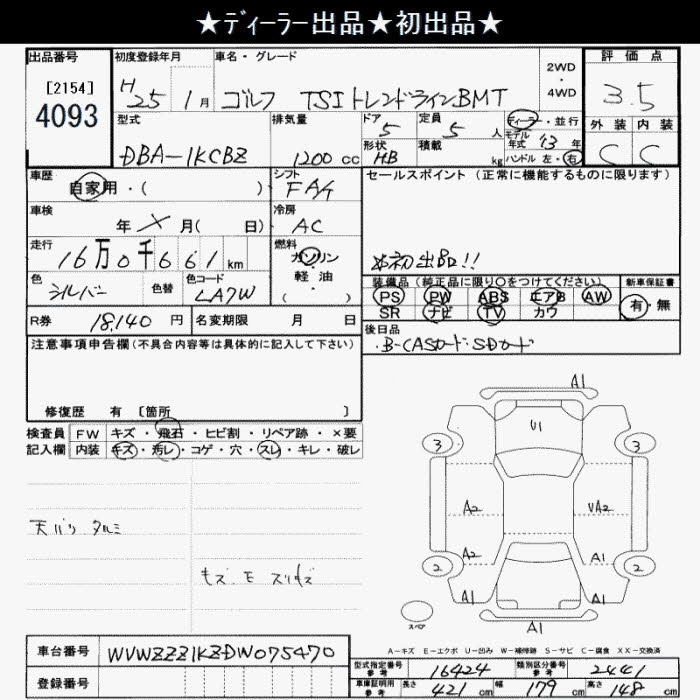 ★ディーラー出品★初出品★
出品番号
[2154]
4093
初度登録年月
H 25 1月
車名・グレード
ゴルフ TSIトレンドラインBMT
2WD
・
4WD
評価点
3.5
外装 内装
C C
型式
DBA-1KCBZ
排気量
1200 cc
ドア 5
形状 HB
定員 5 人
積載 kg
ディーラー・並行
モデル年式 '13 年
ハンドル 左・右
車歴
自家用・( )
シフト
FA4
セールスポイント (正常に機能するものに限ります)
車検
年 X 月( 日)
冷房
AC
走行
16万0千661 km
燃料
ガソリン
・
軽油
( )
※初出品!!
色
シルバー
色替
色コード
LA7W
装備品 (純正品に限り○をつけてください)
PS PW ABS エアB AW
SR ナビ TV カワ
新車保証書
有・無
R券 18,140 円
名変期限 月 日
後日品
B-CASカード・SDカード
注意事項申告欄(不具合内容等は具体的に記入して下さい)
修復歴 有 [箇所 ]
検査員
記入欄
FW キズ・飛石・ヒビ割・リペア跡・×要
内装 キズ・汚レ・コゲ・穴・スレ・キレ・破レ
天バリ タルミ
キズ・E スリキズ
A1
U1
3 3
A2 UA2
A2 A1
2 2
A1 A1
スペア
A1
A-キズ E-エクボ U-凹み W-補修跡 S-サビ C-腐食 XX-交換済
車台番号 WVWZZZ1KZDW075470
登録番号
型式指定番号
参考
16424
類別区分番号
参考
2441
車庫証明用
参考
長さ 421 cm
幅 179 cm
高さ 148 cm